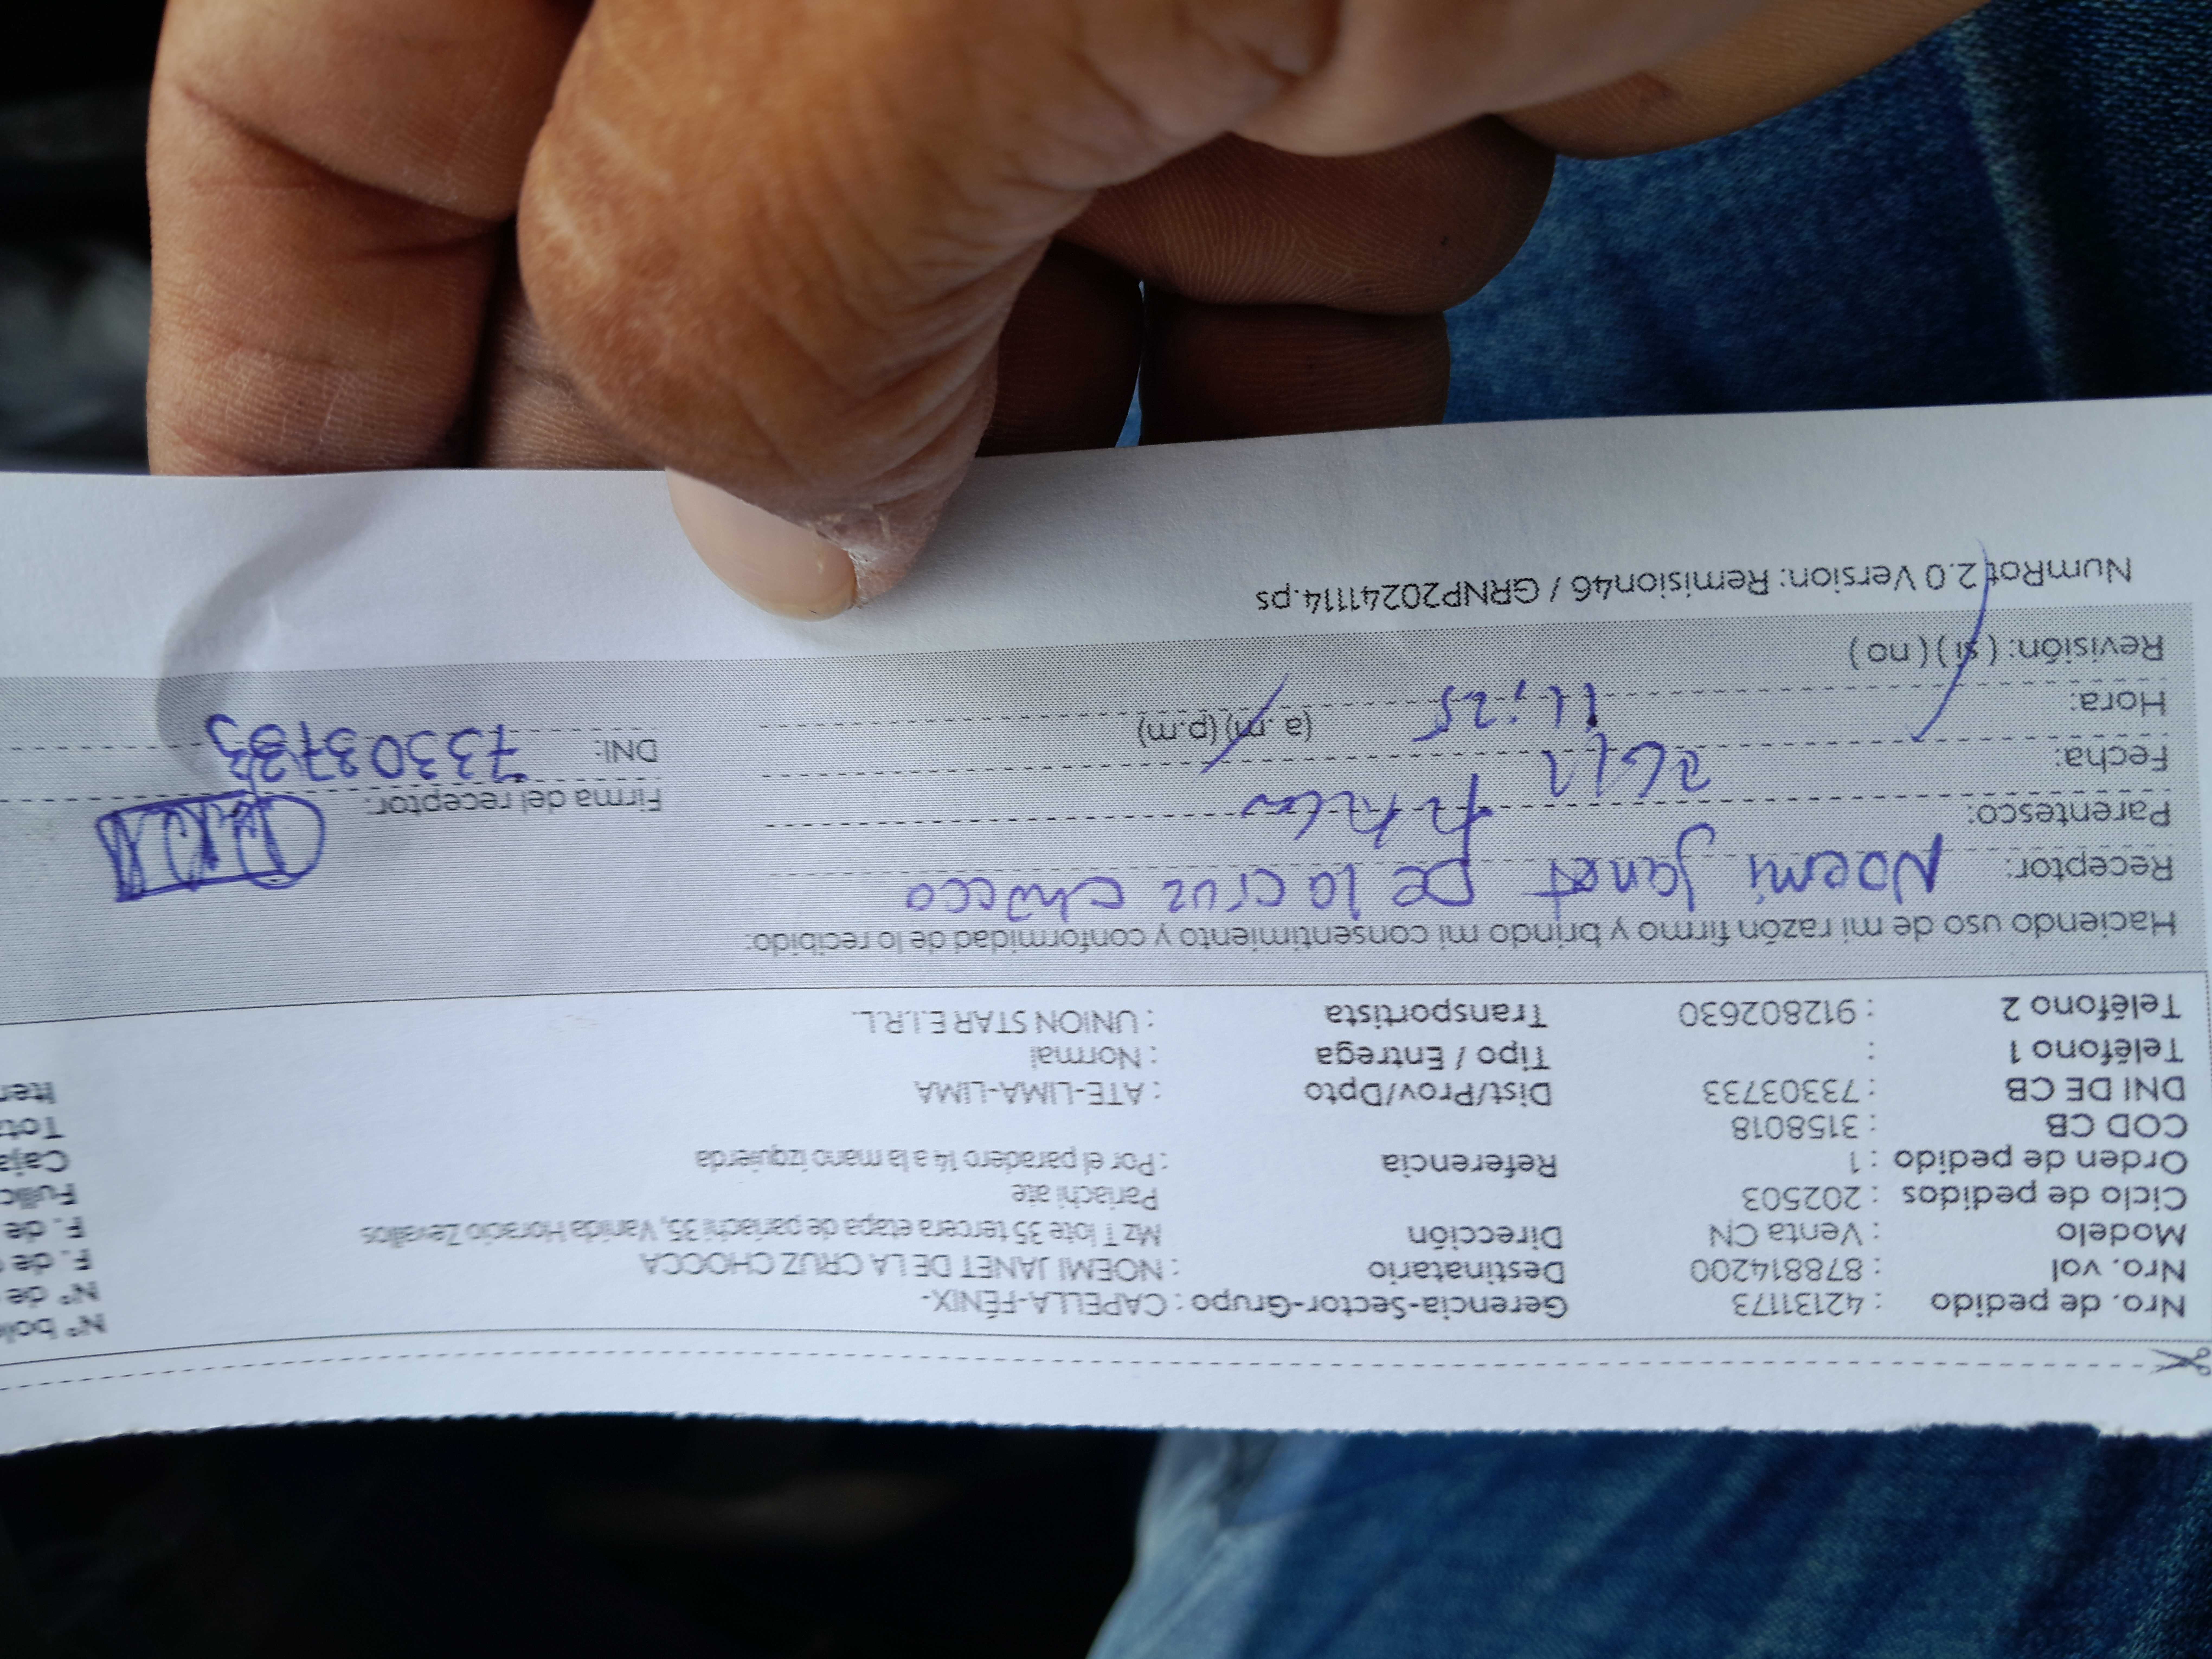 Nro. de pedido : 42131173 Gerencia-Sector-Grupo : CAPELLA-FÉNIX- N° bol
Nro. vol : 878814200 Destinatario : NOEMI JANET DE LA CRUZ CHOCCA N° de
Modelo : Venta CN Dirección Mz T lote 35 tercera etapa de pariachi 35, Vanida Horacio Zevallos F. de
Ciclo de pedidos : 202503 Pariachi ate F. de
Orden de pedido : 1 Referencia : Por el paradero 14 a la mano izquierda
COD CB : 3158018 Caja
DNI DE CB : 73303733 Dist/Prov/Dpto : ATE-LIMA-LIMA Tota
Teléfono 1 : Tipo / Entrega : Normal Iter
Teléfono 2 : 912802630 Transportista : UNION STAR E.I.R.L.
Haciendo uso de mi razón firmo y brindo mi consentimiento y conformidad de lo recibido:
Receptor: Noemi Janet De la cruz chocca
Parentesco: Firma del receptor:
Fecha: DNI:
Hora: 11:25 (a.m) (p.m)
Revisión: (si) (no)
NumRot 2.0 Version: Remision46 / GRNP20241114.ps